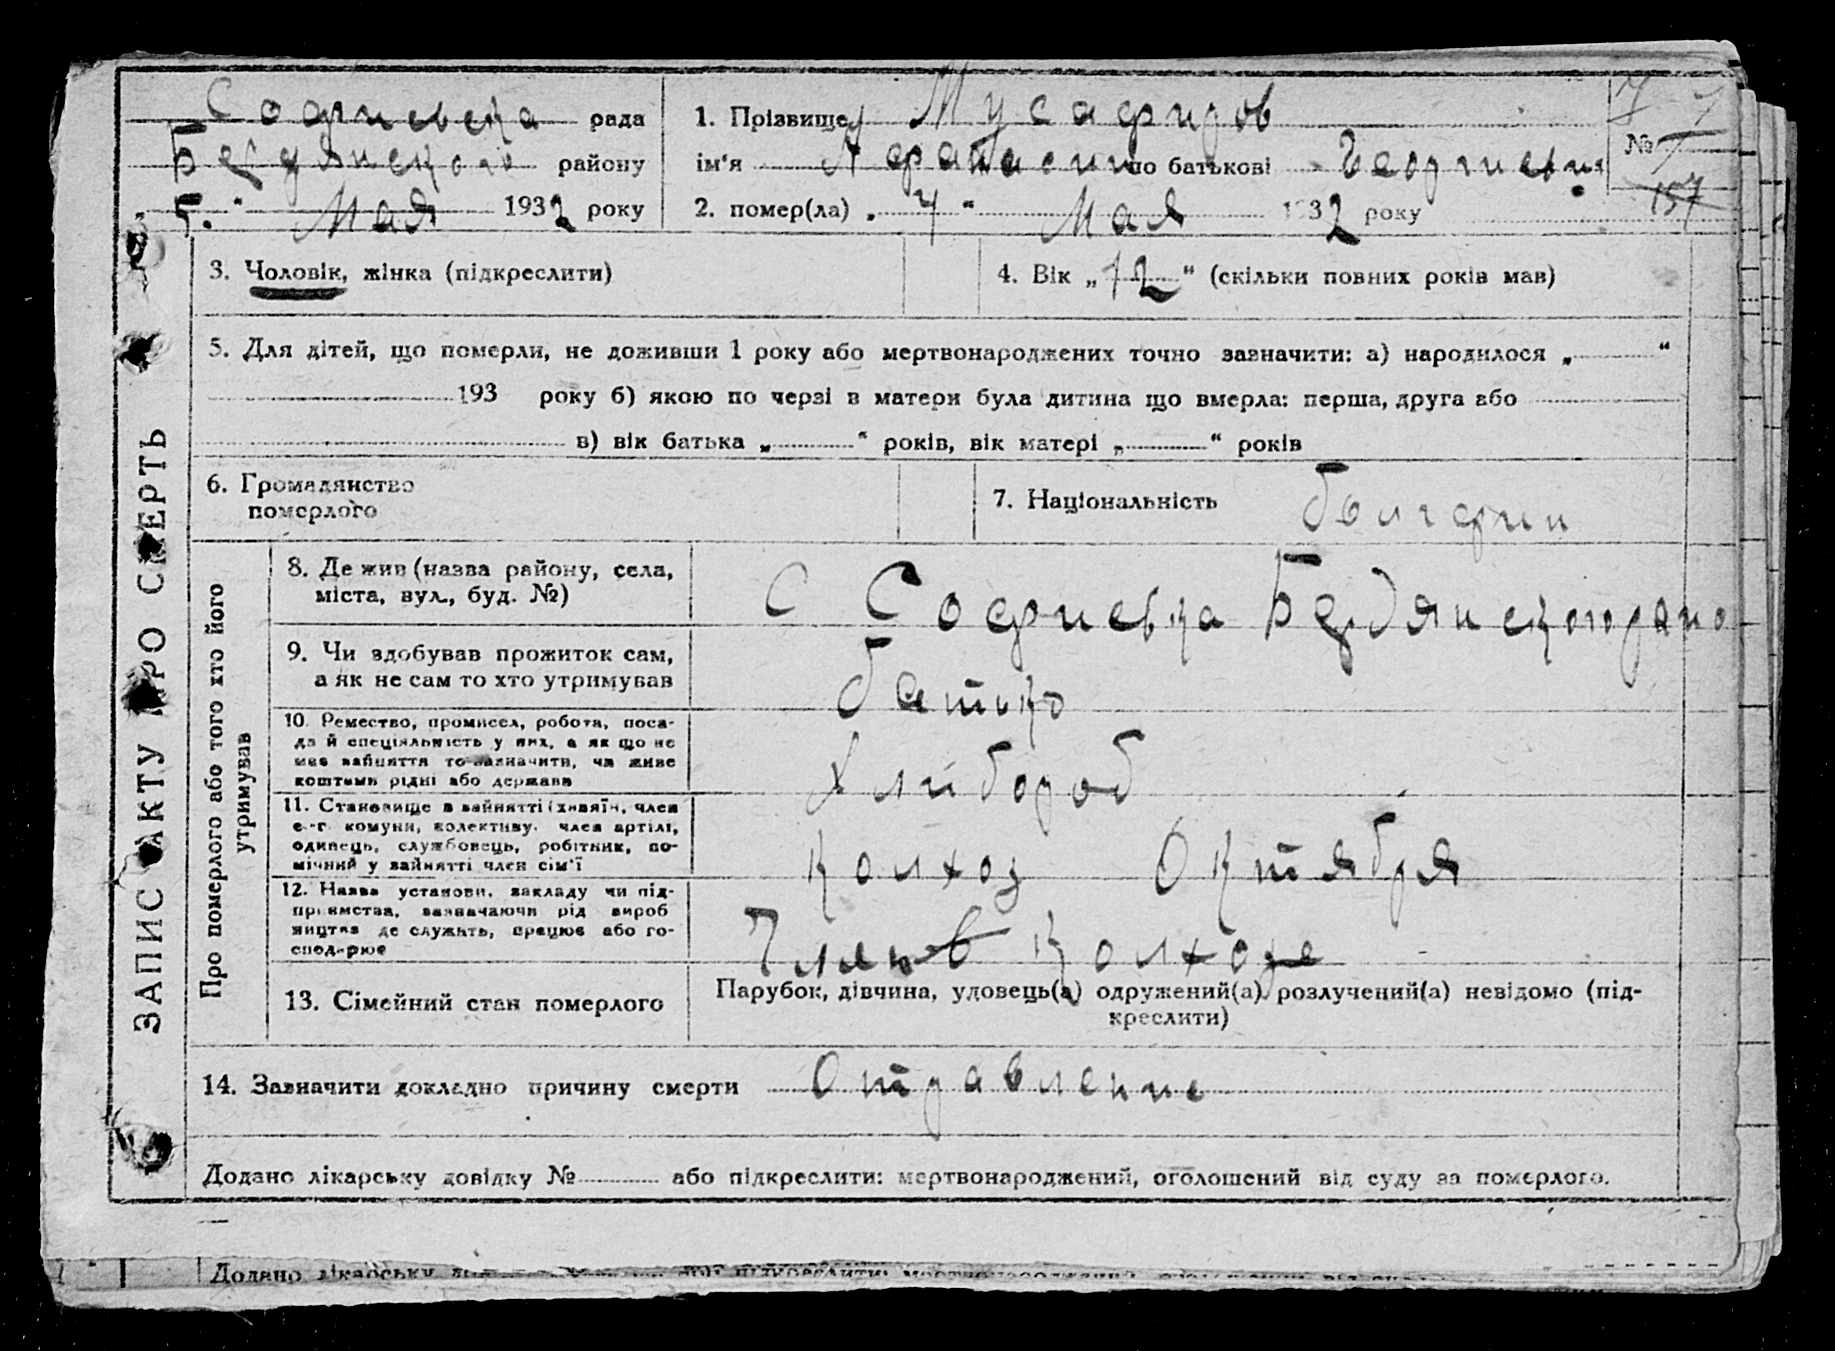 ЗАПИС АКТУ ПРО СМЕРТЬ
Софиевка рада
Бердянского району
"5." Мая 1932 року
1. Прізвище Мусафиров
ім'я Афанасий по батькові Георгиевич
2. помер(ла) „4" Мая 1932 року
№ 7
157
3. Чоловік, жінка (підкреслити)
4. Вік „12" (скільки повних років мав)
5. Для дітей, що померли, не доживши 1 року або мертвонароджених точно зазначити: а) народилося „ "
193 року б) якою по черзі в матери була дитина що вмерла: перша, друга або
в) вік батька „ " років, вік матері „ " років
6. Громадянство
померлого
7. Національність болгарин
Про померлого або того хто його
утримував
8. Де жив (назва району, села,
міста, вул., буд. №)
С Софиевка Бердянского рано
9. Чи здобував прожиток сам,
а як не сам то хто утримував
батько
10. Ремество, промисел, робота, поса-
да й спеціяльність у них, а як що не
мав зайняття то зазначити, чи живе
коштами рідні або держави
Хлібороб
11. Становище в зайнятті (хазяїн, член
с.-г. комуни, колективу, член артілі,
одинець, службовець, робітник, по-
мічний у зайнятті член сім'ї
колхоз Октября
12. Назва установи, закладу чи під-
приємства, зазначаючи рід вироб
ництва де служить, працює або го-
сподарює
Член колхоза
13. Сімейний стан померлого
Парубок, дівчина, удовець(а) одружений(а) розлучений(а) невідомо (під-
креслити)
14. Зазначити докладно причину смерти Отравление
Додано лікарську довідку № або підкреслити: мертвонароджений, оголошений від суду за померлого.
Додано лікарську